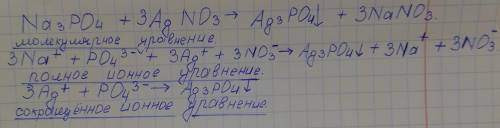 Na₃PO₄ + 3AgNO₃ → Ag₃PO₄↓ + 3NaNO₃.
молекулярное уравнение.
3Na⁺ + PO₄³⁻ + 3Ag⁺ + 3NO₃⁻ → Ag₃PO₄↓ + 3Na⁺ + 3NO₃⁻
полное ионное уравнение.
3Ag⁺ + PO₄³⁻ → Ag₃PO₄↓
сокращённое ионное уравнение.